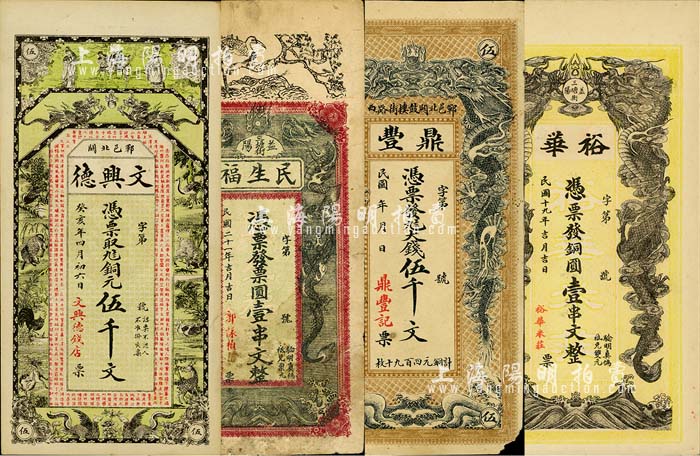 上海陽明拍賣
www.yangmingauction.com
伍
伍
鄠邑北關
文興德
字第
號
憑票取兌銅元伍千文
認票不認人
癸亥年四月初六日
文興德錢店
票
伍
伍
民生福
字第
號
憑票發票圓壹串文整
民國二十一年吉月吉日
票
伍
鄠邑北關鼓樓街路西
鼎豐
字第
號
伍千文
民國 年 月 日
鼎豐記
票
計銅元四百九十枚
伍
裕華
字第
號
憑票發銅圓壹串文整
驗明真偽
民國十九年吉月吉日
裕華米莊
票
上海陽明拍賣
www.yangmingauction.com